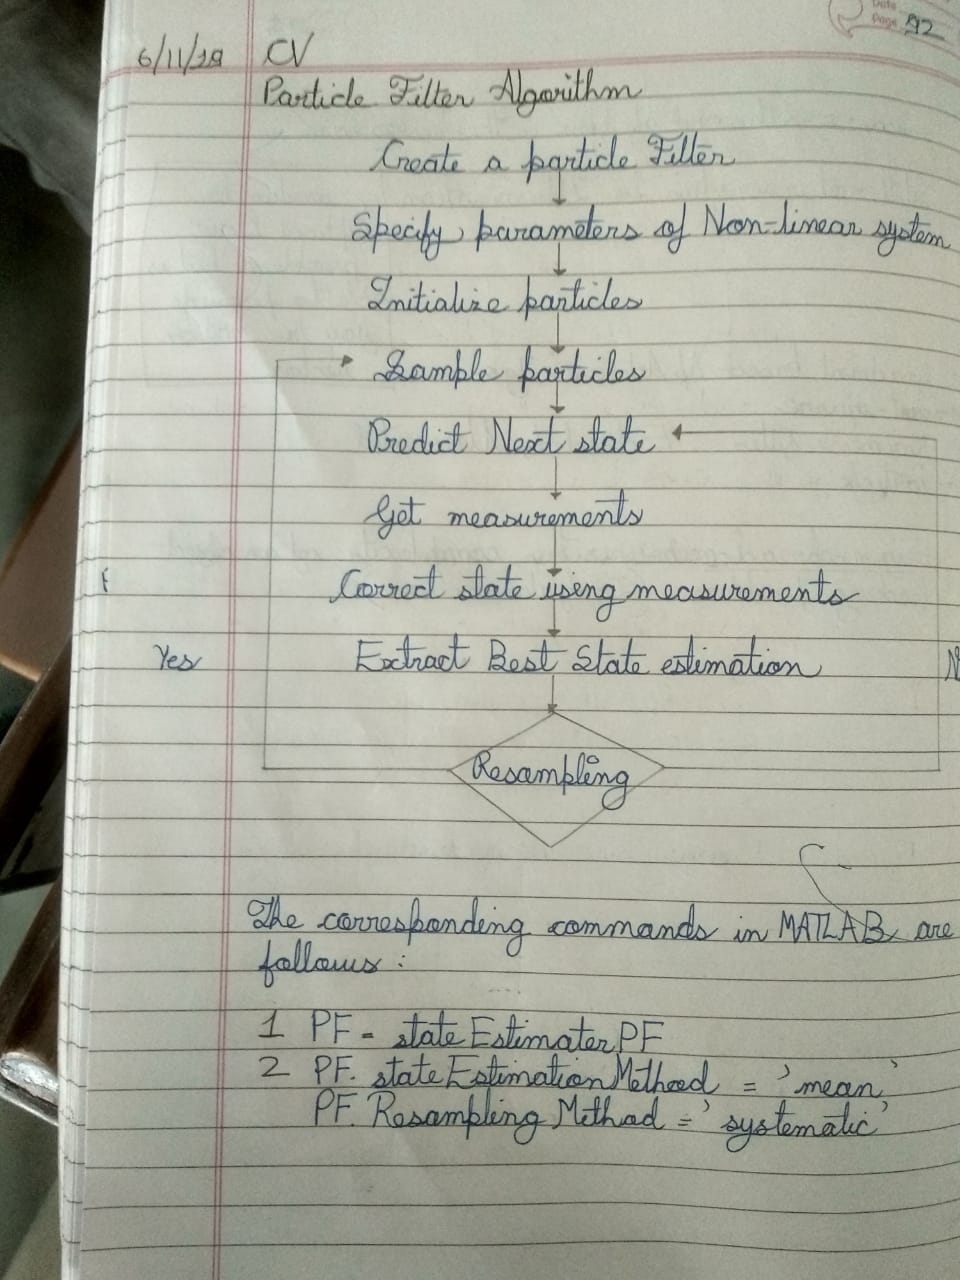 Date
Page 92
6/11/18 CV
Particle Filter Algorithm
Create a particle Filter
Specify parameters of Non-linear system
Initialize particles
Sample particles
Predict Next state
Get measurements
Correct state using measurements
Yes
Extract Best State estimation
Resampling
The corresponding commands in MATLAB are
follows :
1 PF = stateEstimaterPF
2 PF. stateEstimationMethod = 'mean'
PF. Resampling Method = 'systematic'